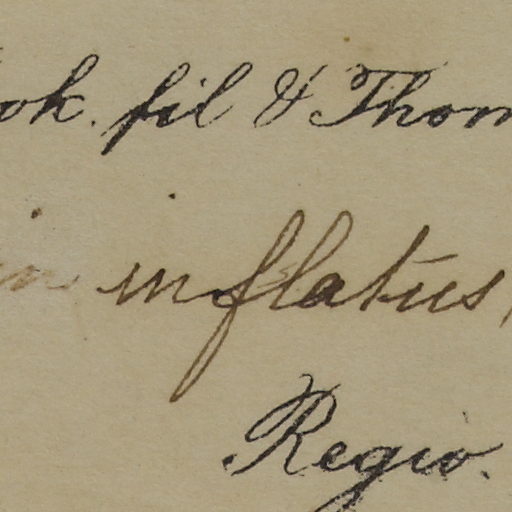 ok. fil & Thom
in inflatus,
Regio.